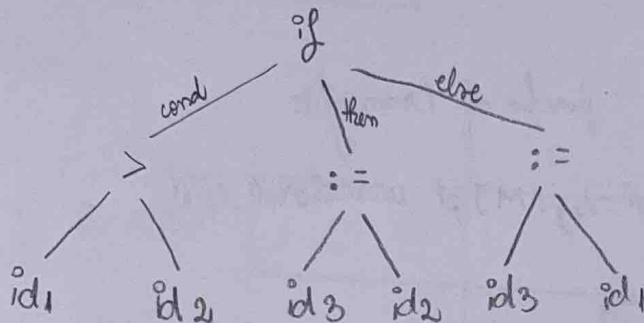 if
cond then else
> := :=
id1 id2 id3 id2 id3 id1